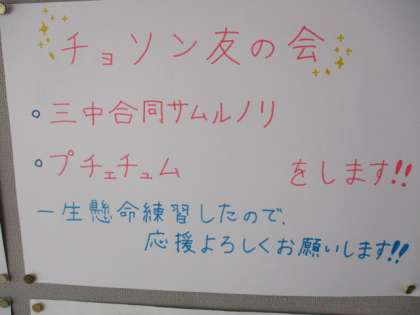 チョソン友の会
○三中合同サムルノリ
○プチェチュム をします!!
一生懸命練習したので、
応援よろしくお願いします!!